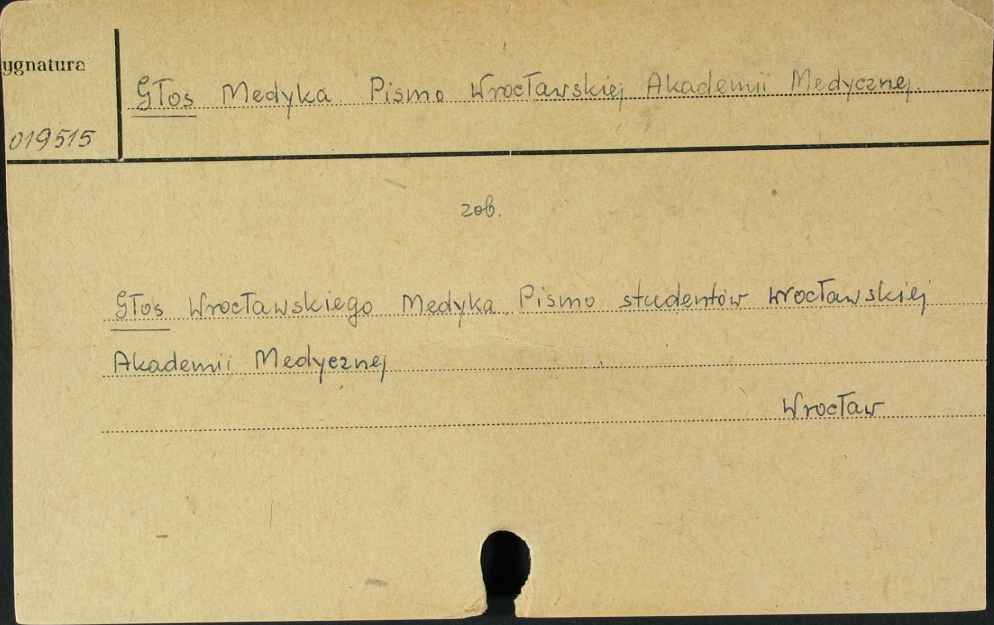 ygnatura
Głos Medyka. Pismo Wrocławskiej Akademii Medycznej.
019515
zob.
Głos Wrocławskiego Medyka. Pismo studentów wrocławskiej
Akademii Medycznej
Wrocław